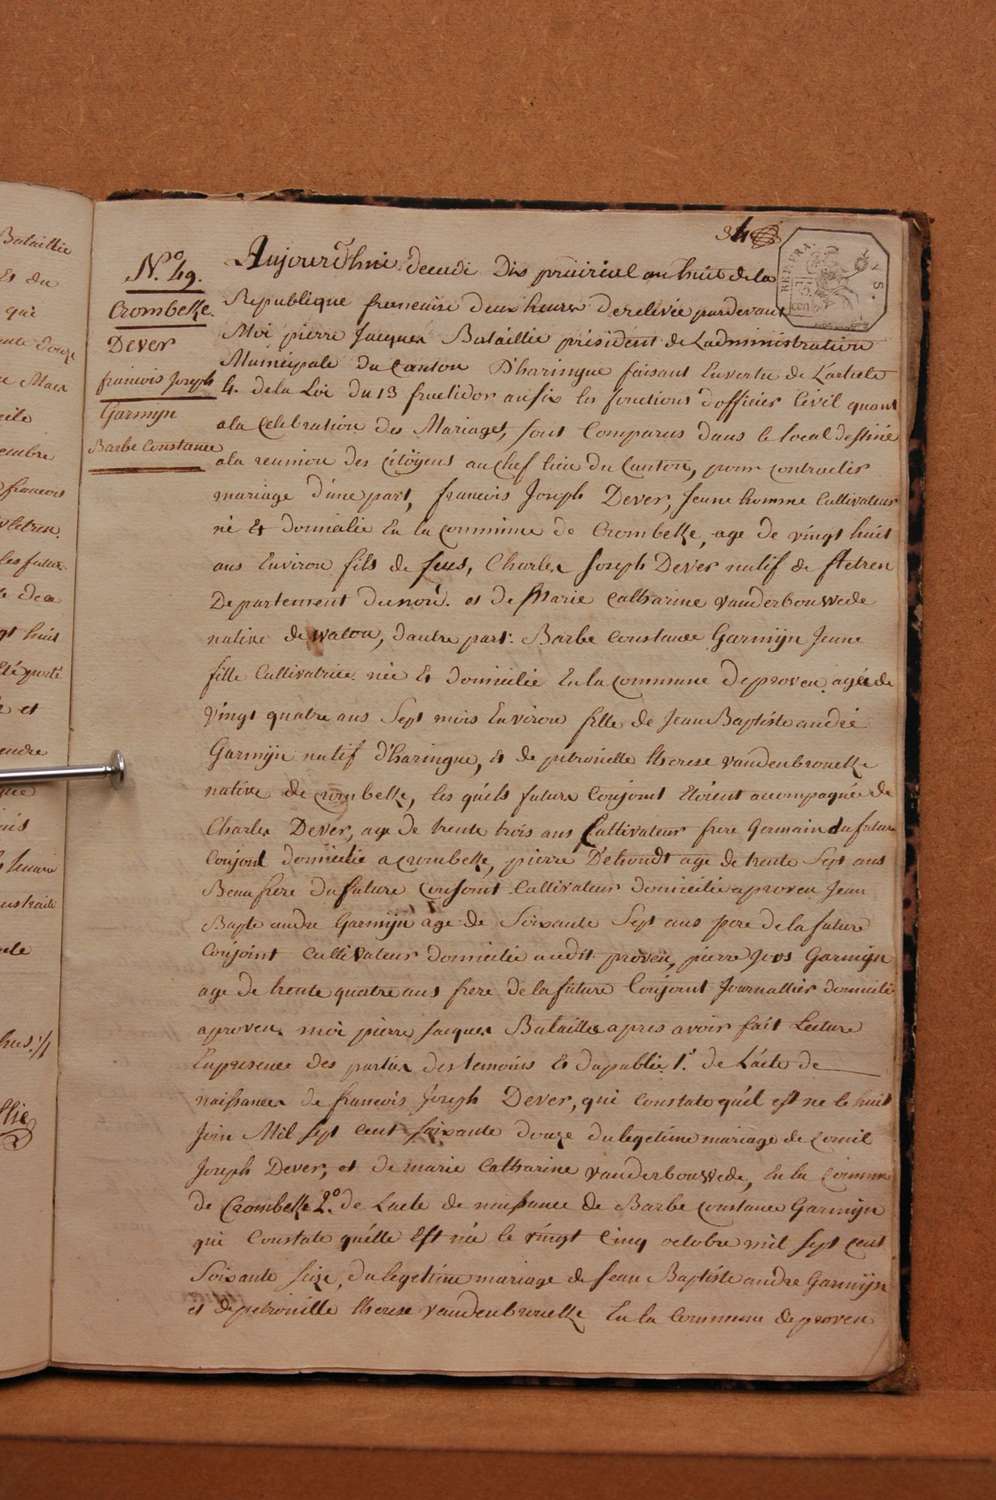 Bataillie
Et du
qui
Mars
cembre
francois
les futur
et
endre
34
N.o 49.
Crombeke.
Dever
francois Joseph
Garmÿn
Barbe Constance
Aujourd'hui decadi Dix prairial an huit de la
Republique francaise deux heures de relivée pardevant
Moi pierre Jacques Bataillie président de Ladministration
Municipale du Canton D'haringue faisant En vertu de L'article
4. de la Loi du 13 fructidor an six les fonctions d'officier Civil quant
a la Celebration des Mariages, sont Comparus dans le local destiné
a la reunion des Citöÿens au chef lieu du Canton, pour contracter
mariage d'une part, francois Joseph Dever, Jeune homme Cultivateur
né Et domicilié En la commune de Crombeke, age de vingt huit
ans Environ fils de feus, Charles Joseph Dever natif de fletren
Departement du nord. et de Marie Catharine vanderbouwede
native de watou, d'autre part. Barbe Constance Garmÿn Jeune
fille Cultivatrice née Et domicilié En la commune de proven agée de
Vingt quatre ans Sept mois Environ fille de Jean Baptiste andré
Garmÿn natif d'haringue, et de petronille therese vandenbrouckke
native de crombekke, les quels futurs Conjoint Etoient acompagnée de
Charles Dever, age de trente trois ans Cultivateur frere Germain du futur
Conjoint domicilie a crombekke, pierre D'ehondt age de trente Sept ans
Beau frere du future conjoint Cultivateur domicilie a proven Jean
Bapte andre Garmÿn age de Soixante Sept ans pere de la future
Conjoint cultivateur domicilie audit proven, pierre Jvos Garmÿn
age de trente quatre ans frere de la future Conjoint Journallier domicilié
a proven, moi pierre Jacques Bataillie apres avoir fait Lecture
En presence des parties des temoins Et du publie 1.o de L'acte de
naissances de francois Joseph Dever, qui constate quél est né le huit
Join Mil sept cent soixante douze du legetime mariage de
Joseph Dever, et de marie Catharine vanderbouwede, En la
de Crombekke 2.o de L'acte de naissance de Barbe constance Garmÿn
qui Constate quélle Est née le vingt Cinq octobre mil sept cent
Soixante seize, du legetime mariage de Jean Baptiste andre Garmÿn
et de petronille therese vandenbrouckke En la Commune de proven